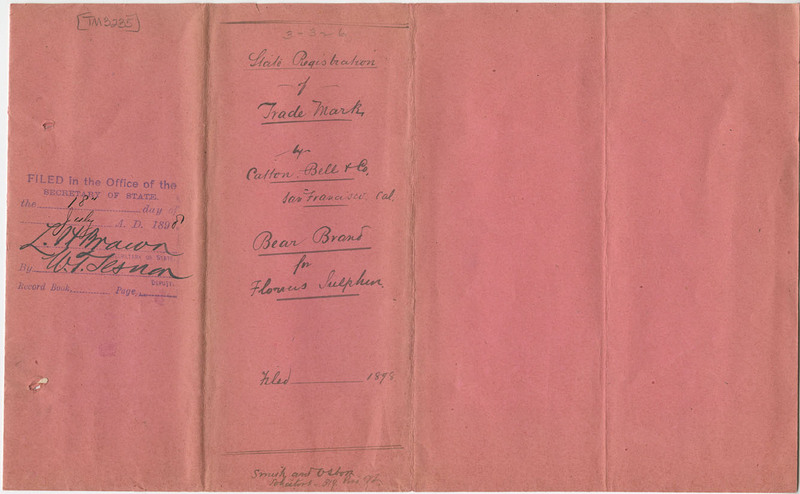 TM3235
FILED in the Office of the
SECRETARY OF STATE.
the 18th day of
July A. D. 1898
L. H. Brown
SECRETARY OF STATE
By W. T. Sesnon
DEPUTY.
Record Book Page
3-326
State Registration
of
Trade Mark
by
Catton, Bell & Co.
San Francisco, Cal.
Bear Brand
for
Flowers Sulphur.
Filed 1898
Smith and Osborn
Solicitors - 319 Pine St.